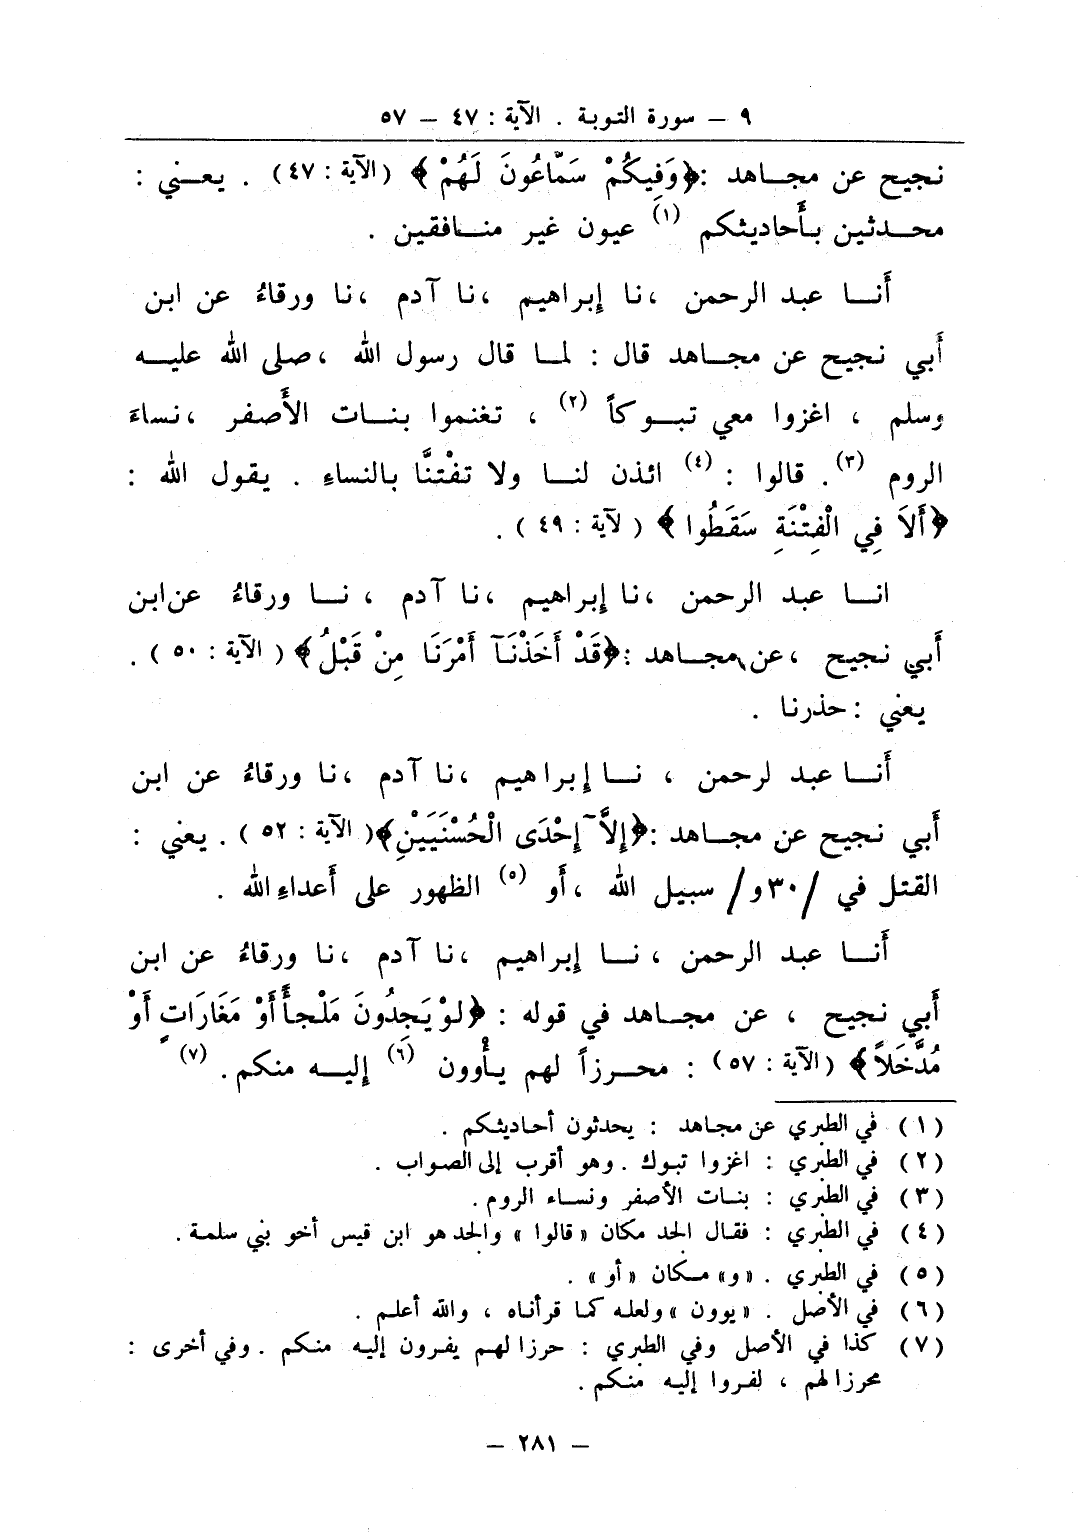 ٩ – سورة التوبة . الآية : ٤٧ – ٥٧
نجيح عن مجاهد : ﴿وَفِيكُمْ سَمَّاعُونَ لَهُمْ﴾ (الآية : ٤٧) . يعني :
محدثين بأَحاديثكم (١) عيون غير منافقين .
أَنا عبد الرحمن ، نا إبراهيم ، نا آدم ، نا ورقاءُ عن ابن
أَبي نجيح عن مجاهد قال : لما قال رسول الله ، صلى الله عليه
وسلم ، اغزوا معي تبوكاً (٢) ، تغنموا بنات الأَصفر ، نساءَ
الروم (٣) . قالوا : (٤) ائذن لنا ولا تفْتنَّا بالنساءِ . يقول الله :
﴿أَلاَ فِي الْفِتْنَةِ سَقَطُوا﴾ ( لآية : ٤٩ ) .
انا عبد الرحمن ، نا إبراهيم ، نا آدم ، نا ورقاءُ عن ابن
أَبي نجيح ، عن مجاهد : ﴿قَدْ أَخَذْنَآ أَمْرَنَا مِنْ قَبْلُ﴾ ( الآية : ٥٠ ) .
يعني : حذرنا .
أَنا عبد لرحمن ، نا إبراهيم ، نا آدم ، نا ورقاءُ عن ابن
أَبي نجيح عن مجاهد : ﴿إِلاَّ إِحْدَى الْحُسْنَيَيْنِ﴾ ( الآية : ٥٢ ) . يعني :
القتل في /٣٠و/ سبيل الله ، أَو (٥) الظهور على أَعداءِ الله .
أَنا عبد الرحمن ، نا إبراهيم ، نا آدم ، نا ورقاءُ عن ابن
أَبي نجيح ، عن مجاهد في قوله : ﴿لوْ يَجِدُونَ مَلْجأً أَوْ مَغَارَاتٍ أَوْ
مُدَّخَلاً﴾ (الآية : ٥٧) : محرزاً لهم يأْوون (٦) إليه منكم . (٧)
(١) في الطبري عن مجاهد : يحدثون أحاديثكم .
(٢) في الطبري : اغزوا تبوك . وهو أقرب إلى الصواب .
(٣) في الطبري : بنات الأصفر ونساء الروم .
(٤) في الطبري : فقال الجد مكان « قالوا » والجد هو ابن قيس أخو بني سلمة .
(٥) في الطبري . « و » مكان « أو » .
(٦) في الأصل . « يوون » ولعله كما قرأناه ، والله أعلم .
(٧) كذا في الأصل وفي الطبري : حرزا لهم يفرون إليه منكم . وفي أخرى :
محرزا لهم ، لفروا إليه منكم .
– ٢٨١ –